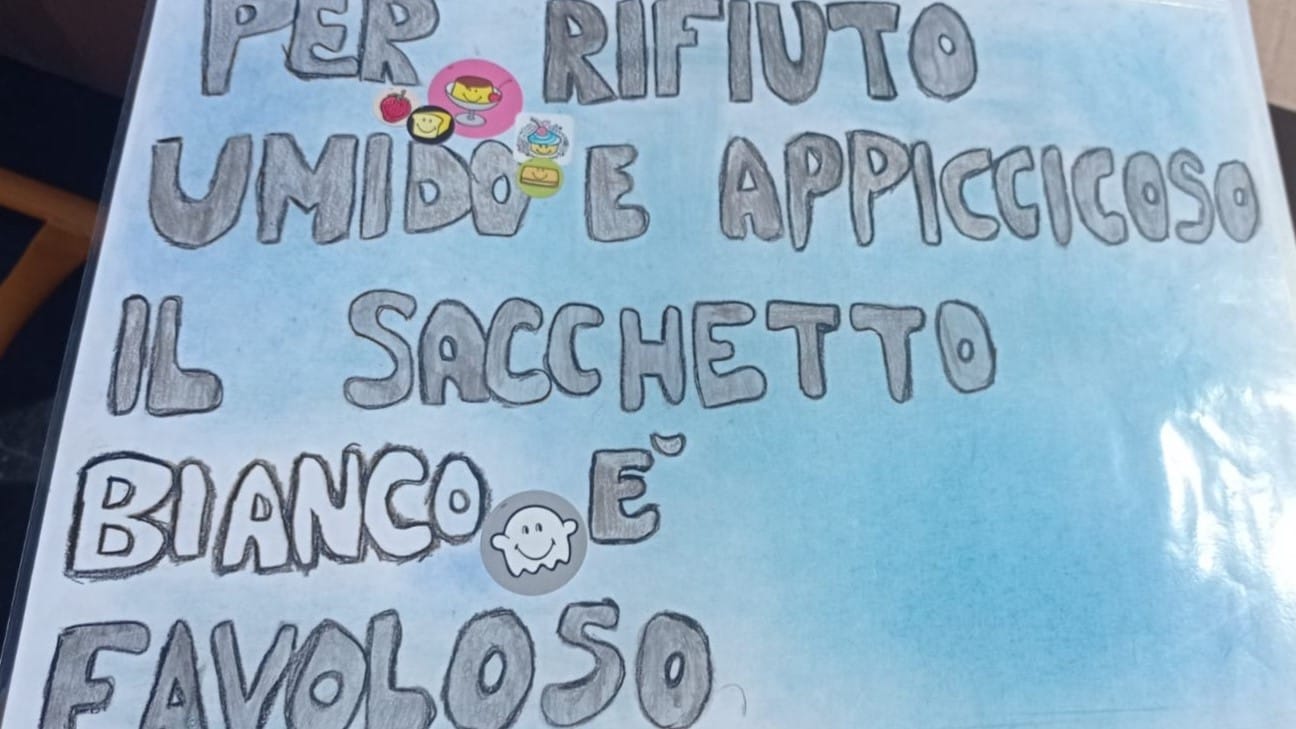 PER RIFIUTO
UMIDO E APPICCICOSO
IL SACCHETTO
BIANCO È
FAVOLOSO